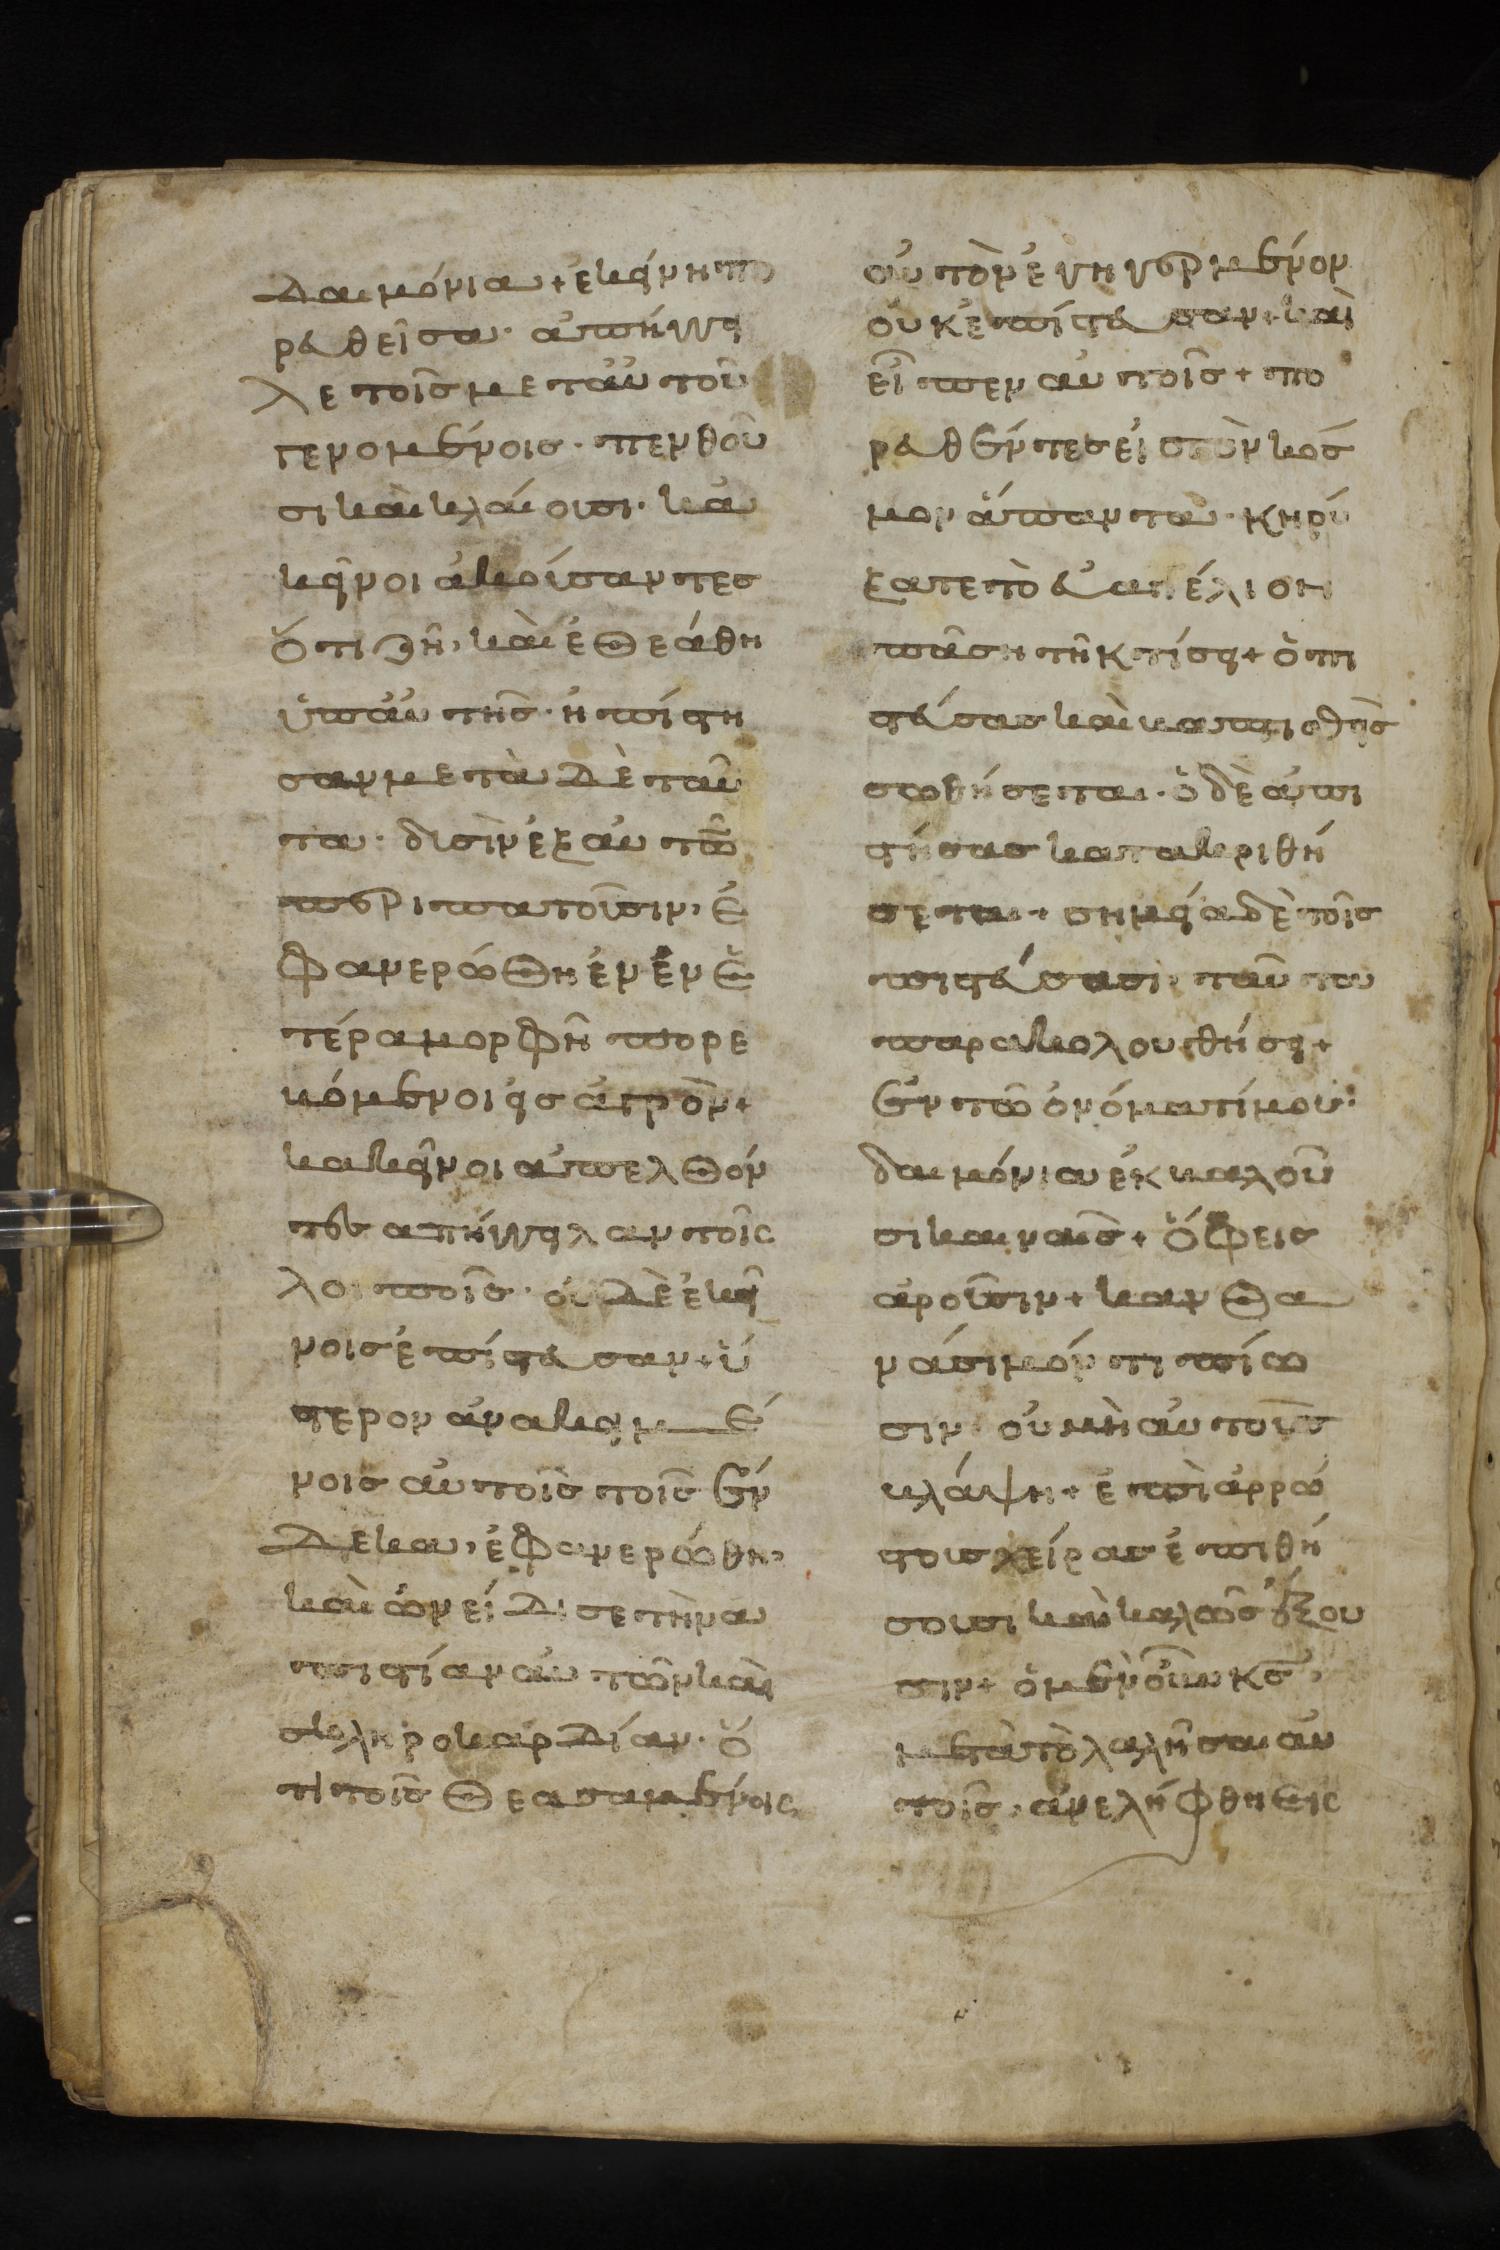 δαιμόνια + ἐκείνη πο
ρευθεῖσα · ἀπήγγει
λε τοῖς μετ αὐτοῦ
γενομένοις · πενθοῦ
σι καὶ κλαίουσι · κα
κεῖνοι ἀκούσαντες
ὅτι ζῆ, καὶ ἐθεάθη
ὑπ αὐτῆς · ἠπίστη
σαν μετὰ δὲ ταῦ
τα · δισὶν ἐξ αὐτῶ
περιπατοῦσιν, ἐ
φανερώθη ἐν ἑ
τέρα μορφῆ πορε
υόμενοι εἰς ἀγρὸν +
κακεῖνοι ἀπελθόν
τες απήγγειλαν τοῖς
λοιποῖς · οὐδὲ ἐκεί
νοις ἐπίστευσαν + ὕ
στερον ἀνακειμέ
νοις αὐτοῖς τοῖς ἕν
δεκα, ἐφανερώθη,
καὶ ὠνείδισε τὴν α
πιστίαν αὐτῶν καὶ
σκληροκαρδίαν · ὅ
τι τοῖς θεασαμένοις
αὐτὸν ἐγηγερμένον
οὐκ ἐπίστευσαν + καὶ
εἶπεν αὐτοῖς + πο
ρευθέντες εἰς τὸν κόσ
μον ἅπαντα · κηρύ
ξατε τὸ εὐαγγέλιον
πάση τῆ κτίσει + ὁ πι
στεύσας καὶ βαπτισθεὶς
σωθήσεται · ὁ δὲ ἀπι
στήσας κατακριθή
σεται + σημεῖα δὲ τοῖς
πιστεύσασι · ταῦτα
παρακολουθήσει +
ἐν τῶ ὀνόματί μου :
δαιμόνια ἐκβαλοῦ
σι καιναῖς + ὄφεις
ἀροῦσιν + κἂν θα
νάσιμόν τι πίω
σιν · οὐ μὴ αὐτοὺς
βλάψη + ἐπὶ ἀρρώ
στους χεῖρας ἐπιθή
σουσι καὶ καλῶς ἕξου
σιν + ὁ μὲν οὖν κς,
μετὰ τὸ λαλῆσαι αὐ
τοῖς, ἀνελήφθη εἰς